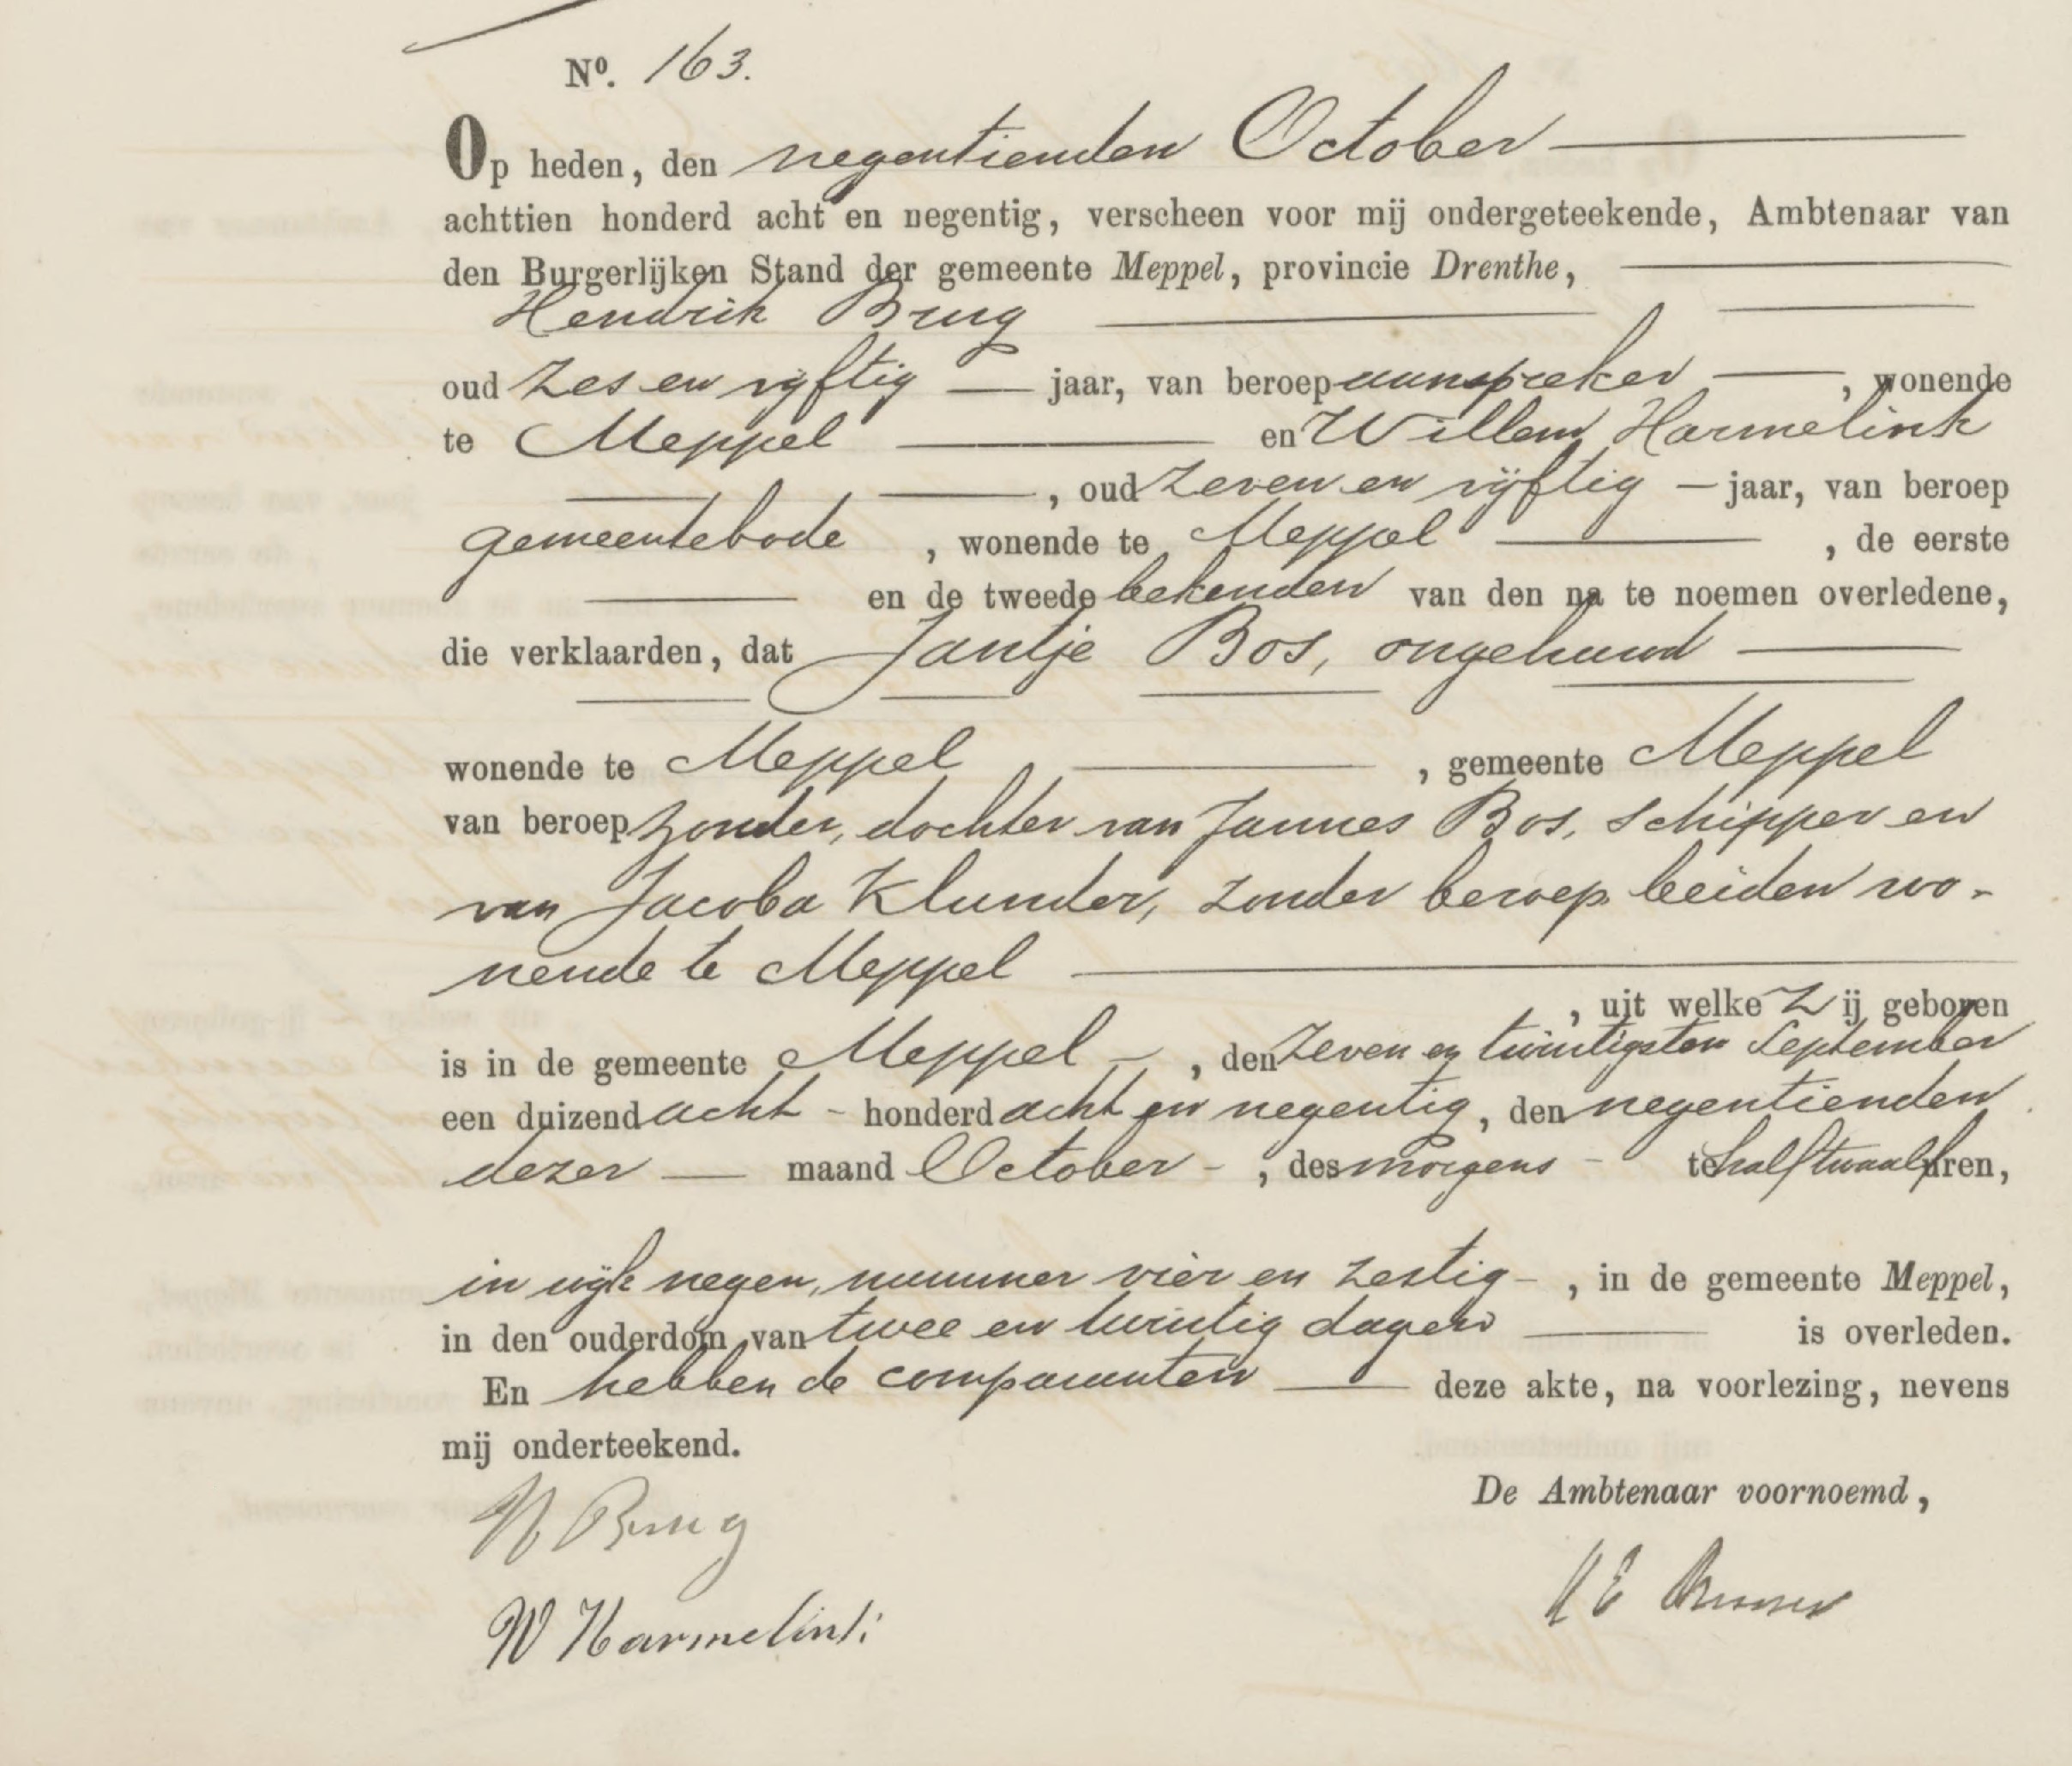 Nº. 163.
Op heden, den negentienden October
achttien honderd acht en negentig, verscheen voor mij ondergeteekende, Ambtenaar van
den Burgerlijken Stand der gemeente Meppel, provincie Drenthe,
Hendrik Brug
oud zes en vijftig jaar, van beroep aanspreker, wonende
te Meppel en Willem Harmelink
, oud zeven en vijftig jaar, van beroep
gemeentebode, wonende te Meppel, de eerste
en de tweede bekenden van den na te noemen overledene,
die verklaarden, dat Jantje Bos, ongehuwd
wonende te Meppel, gemeente Meppel
van beroep zonder, dochter van Jannes Bos, schipper en
van Jacoba Klunder, zonder beroep beiden wo-
nende te Meppel
, uit welke Zij geboren
is in de gemeente Meppel, den zeven en twintigsten September
een duizend acht honderd acht en negentig, den negentienden
dezer maand October, des morgens te half twaalf uren,
in wijk negen, nummer vier en zestig, in de gemeente Meppel,
in den ouderdom van twee en twintig dagen is overleden.
En hebben de comparanten deze akte, na voorlezing, nevens
mij onderteekend.
De Ambtenaar voornoemd,
H Brug
W Harmelink